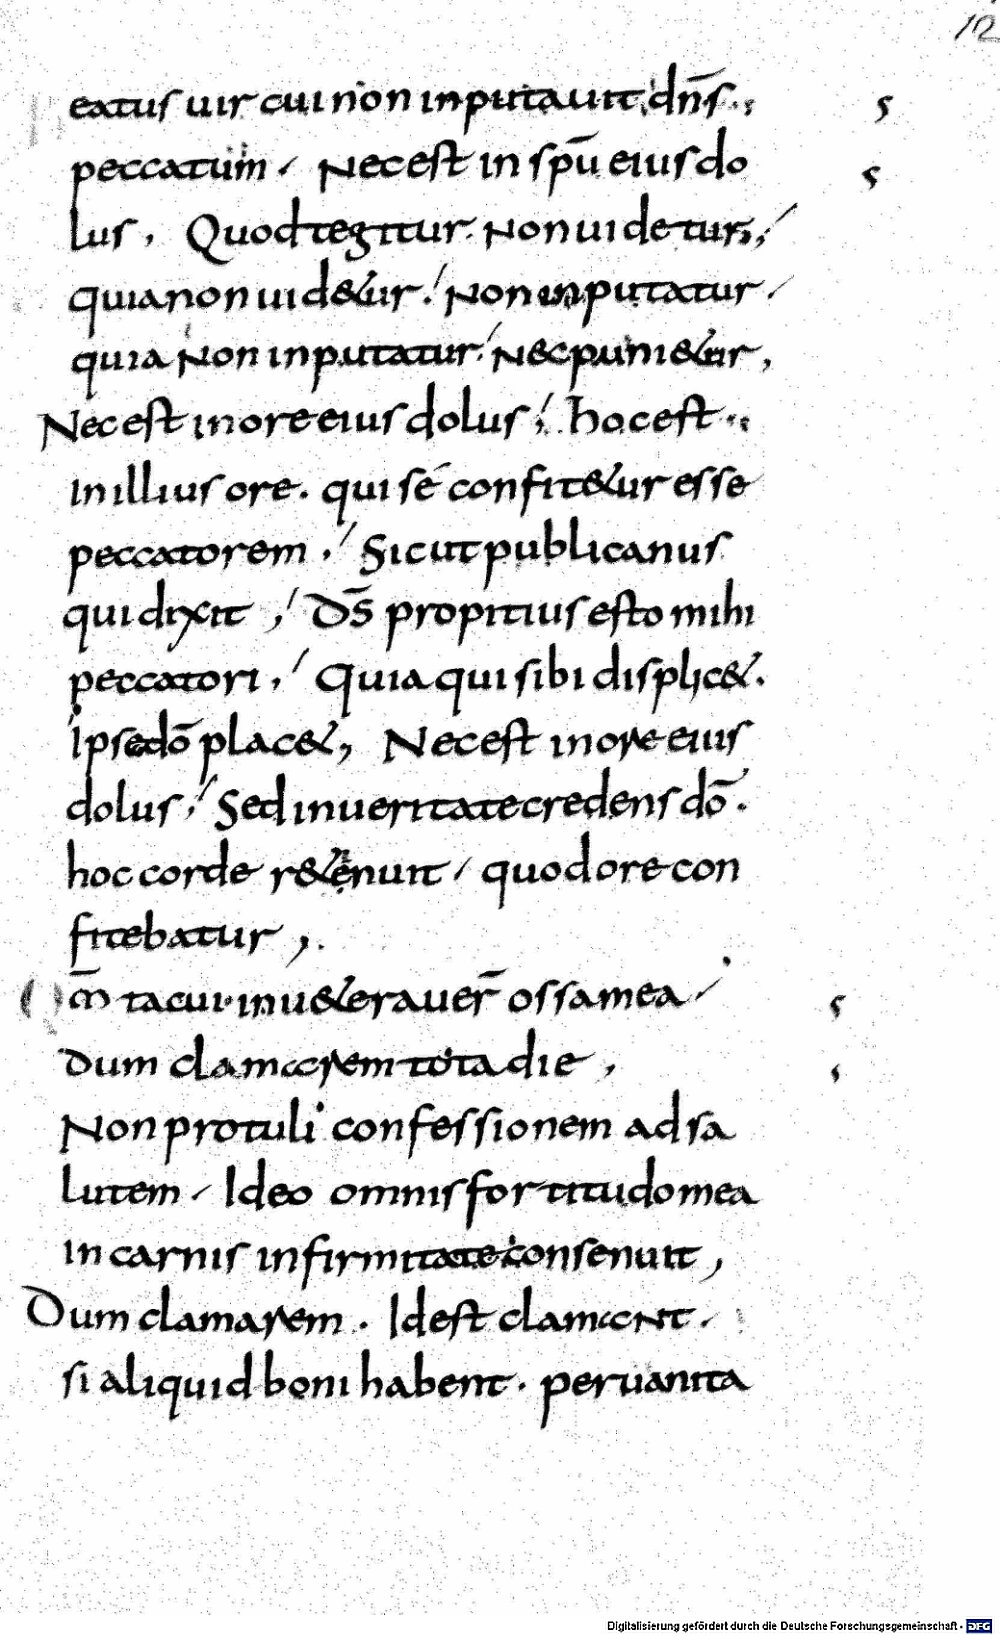 12
eatus uir cui non inputauit dn̄s.,
peccatum / Nec est in sp̄u eius do
lus, Quod tegitur. Non uidetur,/
quia non uid&ur./ Non inputatur/
quia Non inputatur./ N&c puni&ur,
Nec est in ore eius dolus,/ hoc est.,
In illius ore. qui se confit&ur esse
peccatorem./ Sicut publicanus
qui dixit,/ D̄S propitius esto mihi
peccatori,/ Quia qui sibi displic&.
Ipse dō plac&, Nec est in ore eius
dolus,/ Sed in ueritate credens dō.
hoc corde r&enuit / quod ore con
fitebatur,.
m̄ tacui. inu&erauer̄ ossa mea /
Dum clamarem tota die,
Non protuli confessionem ad sa
lutem / Ideo omnis fortitudo mea
in carnis infirmitate consenuit,
Dum clamarem. Idest clamant.
si aliquid boni habent. per uanita
Digitalisierung gefördert durch die Deutsche Forschungsgemeinschaft - DFG